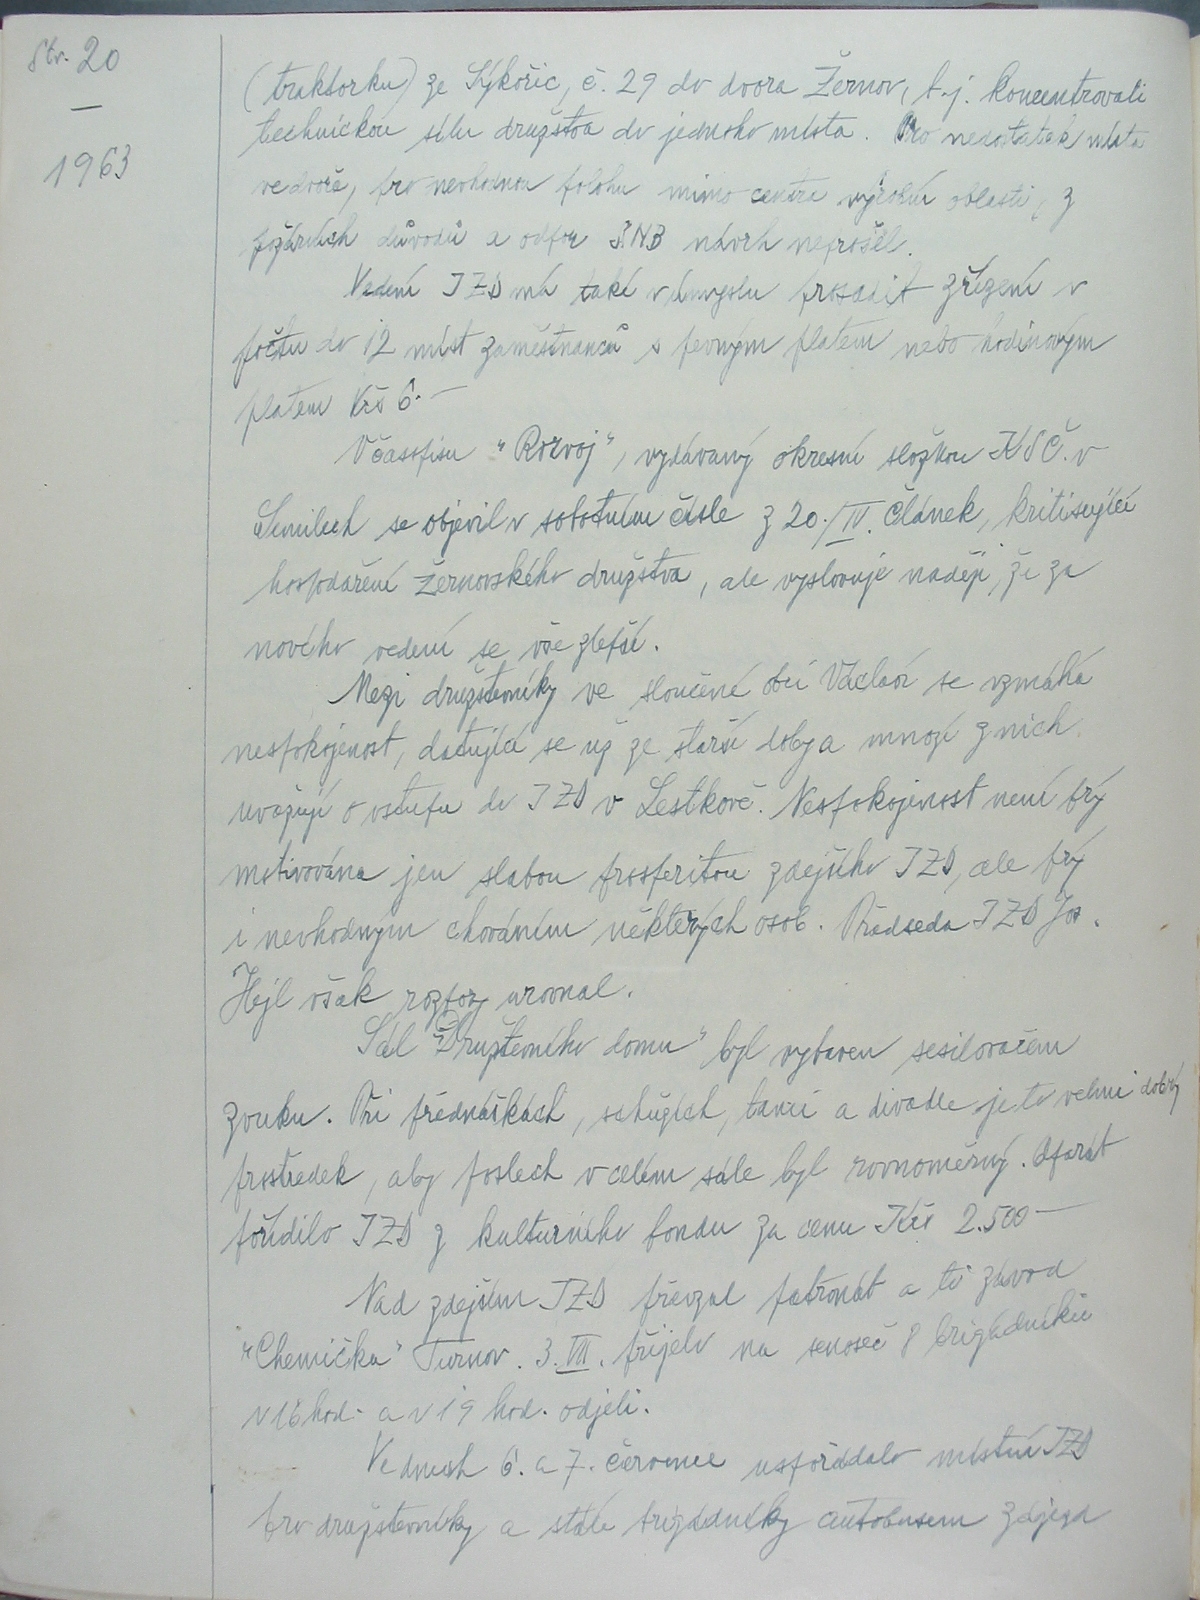 Str. 20
—
1963
(traktorku) ze Sýkořic, č. 29 do dvora Žernov, t.j. koncentrovati
technickou sílu družstva do jednoho místa. Pro nedostatek místa
ve dvoře, pro nevhodnou polohu mimo centra výrobní oblasti, z
požárních důvodů a odpor SNB návrh neprošel.
Vedení JZD má také v úmyslu prosadit zřízení v
počtu do 12 míst zaměstnanců s pevným platem nebo hodinovým
platem Kčs 6.—
V časopisu "Rozvoj", vydávaný okresní složkou KSČ. v
Semilech se objevil v sobotním čísle z 20./IV. článek, kritisující
hospodaření Žernovského družstva, ale vyslovuje naději, že za
nového vedení se vše zlepší.
Mezi družstevníky ve sloučené obci Václaví se vzmáhá
nespokojenost, datující se už ze starší doby a mnozí z nich
uvažují o vstupu do JZD v Lestkově. Nespokojenost není prý
motivována jen slabou prosperitou zdejšího JZD, ale prý
i nevhodným chováním některých osob. Předseda JZD Jos.
Hejl však rozpory urovnal.
Sál "Družstevního domu" byl vybaven sesilovačem
zvuku. Při přednáškách, schůzích, tanci a divadle je to velmi dobrý
prostředek, aby poslech v celém sále byl rovnoměrný. Aparát
pořídilo JZD z kulturního fondu za cenu Kčs 2.500—
Nad zdejším JZD převzal patronát a to závod
"Chemička" Turnov. 3. VII. přijelo na senoseč 8 brigádníků
v 16 hod. a v 19 hod. odjeli.
Ve dnech 6. a 7. července uspořádalo místní JZD
pro družstevníky a stálé brigádníky autobusem zájezd